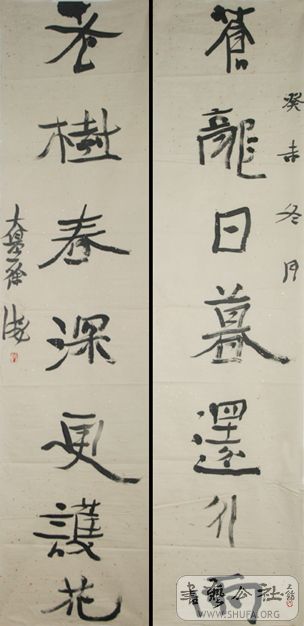 蒼龍日暮還行雨
冬月
老樹春深更護花
書藝公社
WWW.SHUFA.ORG